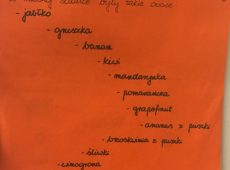 W naszej sałatce były takie owoce:
- jabłko
- gruszka
- banan
- kiwi
- mandarynka
- pomarańcza
- grapefruit
- ananas z puszki
- brzoskwinia z puszki
- śliwki
- winogrona